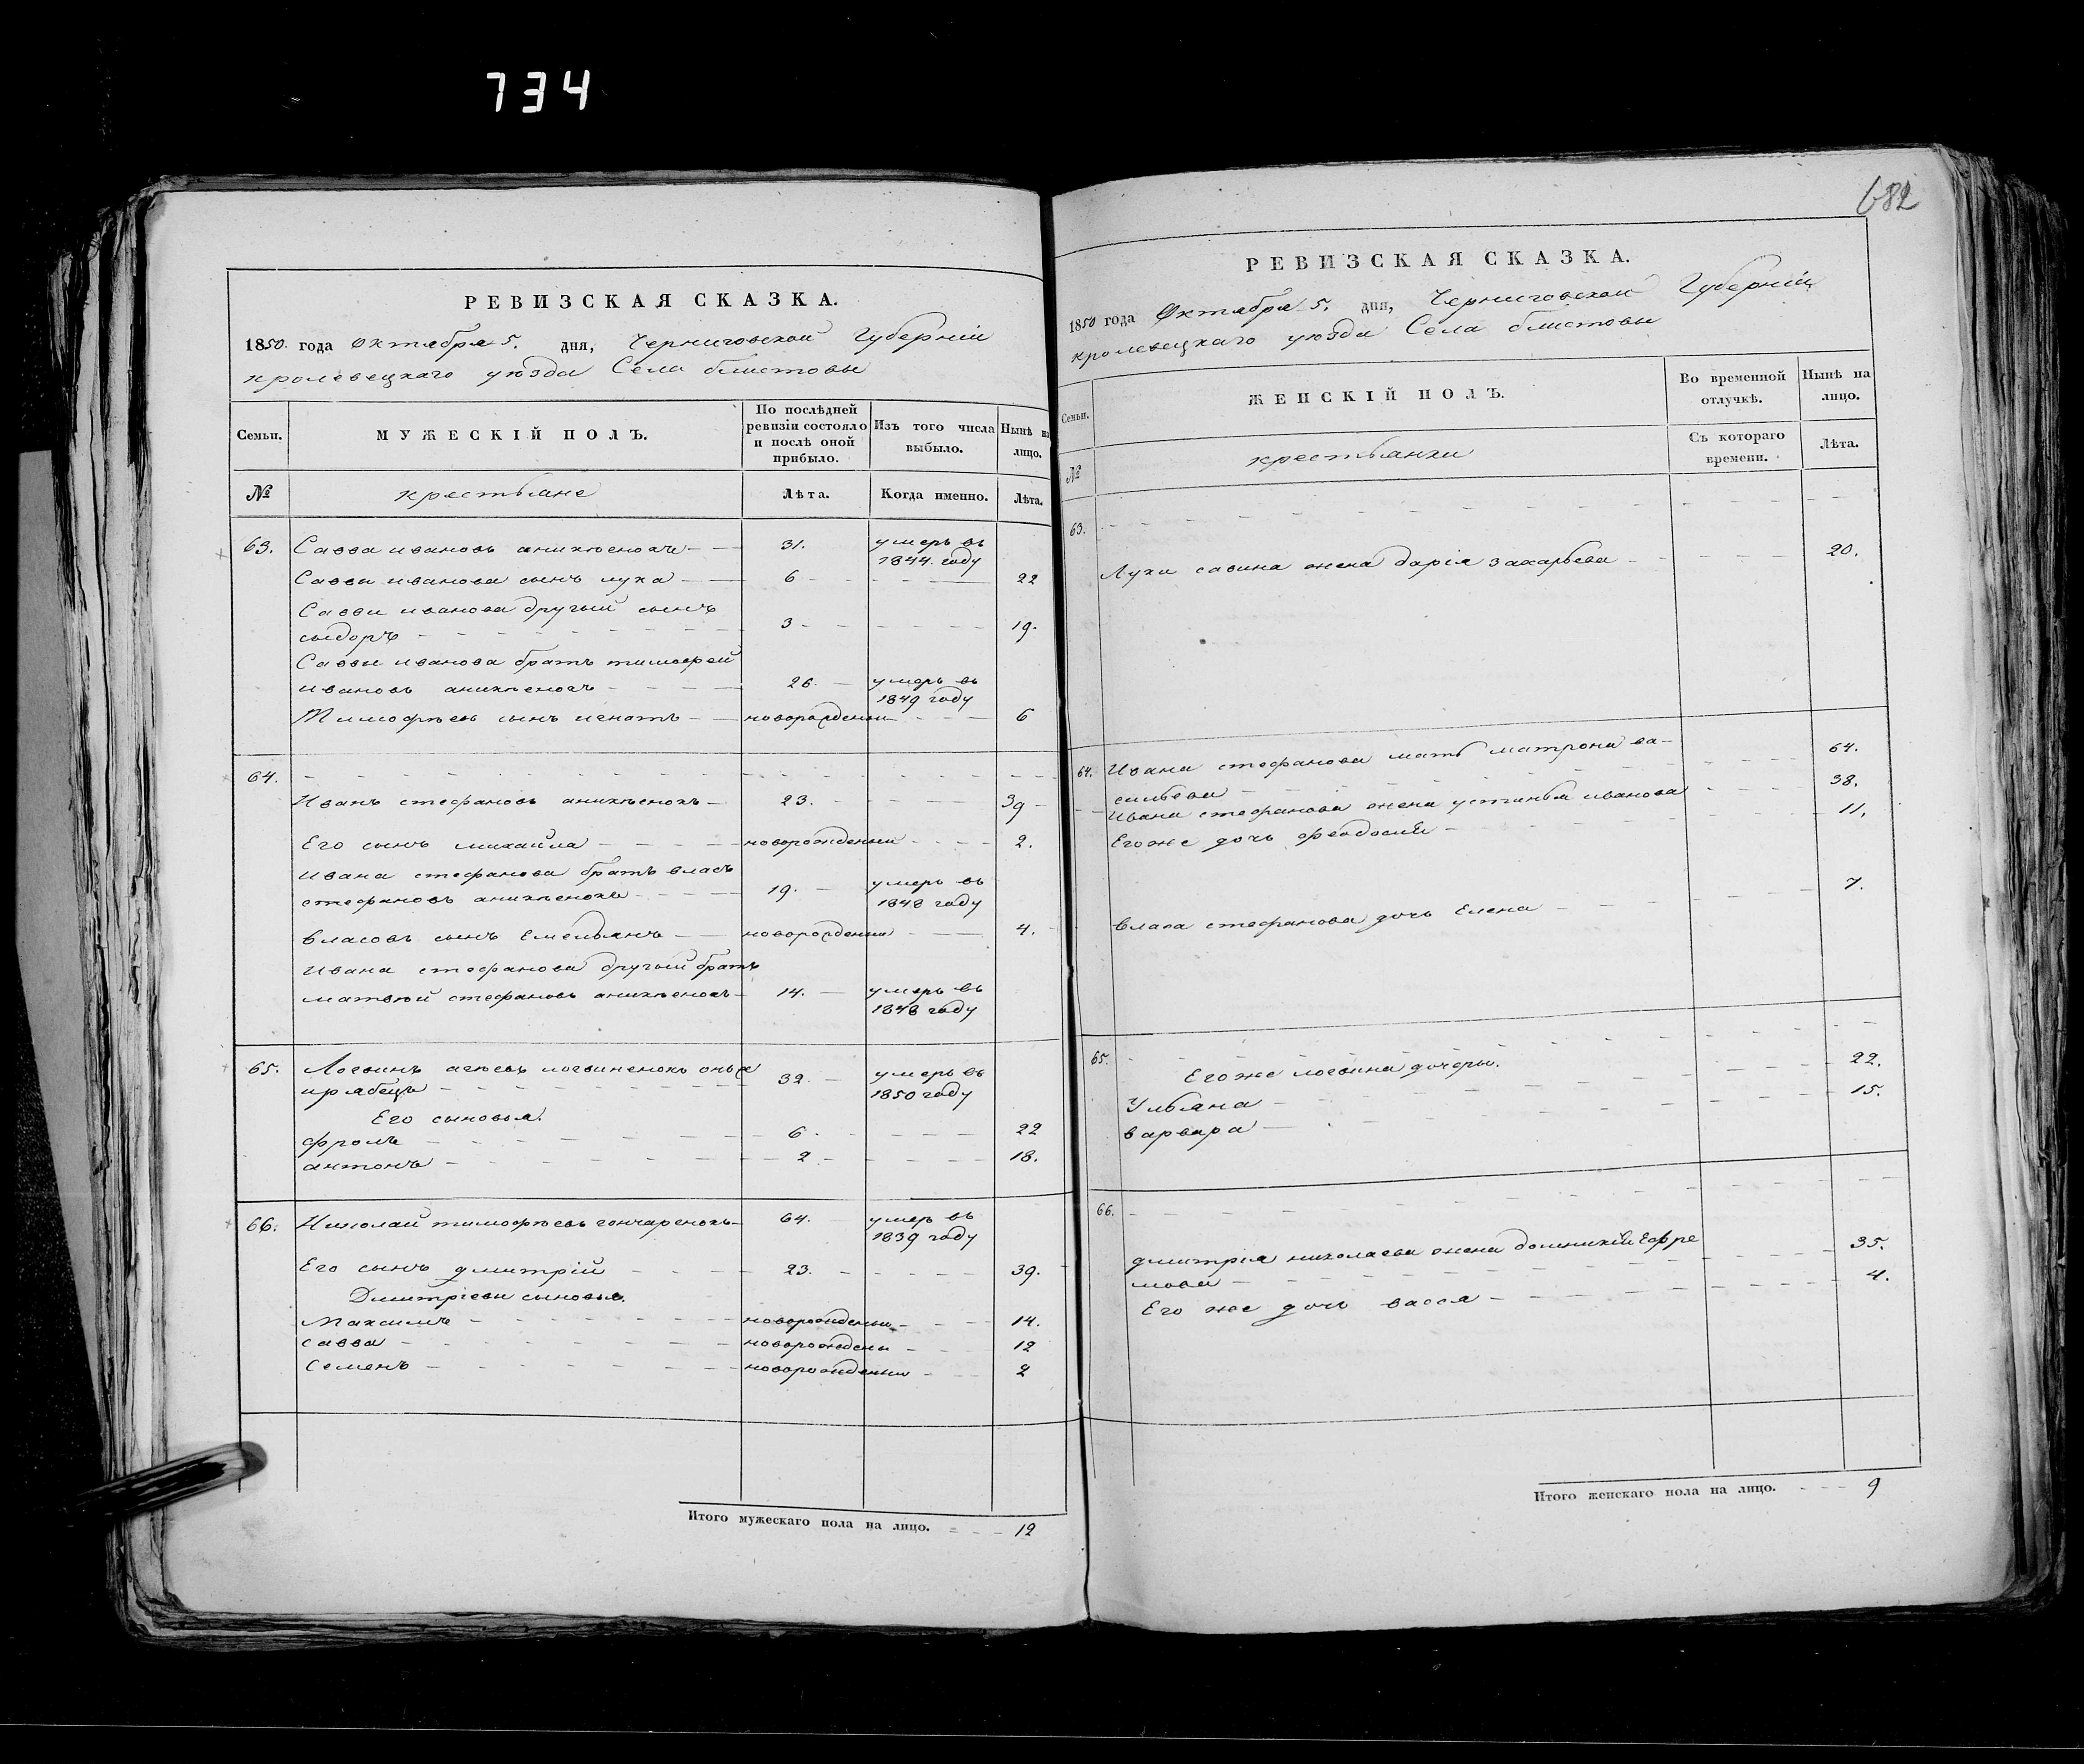 734
РЕВИЗСКАЯ СКАЗКА.
1850. года Октября 5. дня, Черниговской Губерніи
кролевецкаго уѣзда Села блистовы
Семьи.
МУЖЕСКІЙ ПОЛЪ.
По послѣдней ревизіи состояло и послѣ оной прибыло.
Изъ того числа выбыло.
Нынѣ на лицо.
№
крестьяне
Лѣта.
Когда именно.
Лѣта.
63. Савва ивановъ аникѣенокъ 31. умеръ въ
1844. году
Саввы иванова сынъ лука 6 22
Саввы иванова другий сынъ
сыдоръ 3 19.
Саввы иванова братъ тимофей
ивановъ аникѣенокъ 26. умеръ въ
1849 году
Тимофѣевъ сынъ игнатъ новорожденый 6
64.
Иванъ стефановъ аникѣенокъ 23. 39
Его сынъ михайла новорожденый 2.
Ивана стефанова братъ власъ
стефановъ аникѣенокъ 19. умеръ въ
1848 году
Власовъ сынъ Емельянъ новорожденый 4.
Ивана стефанова другий братъ
матвѣй стефановъ аникѣенокъ 14. умеръ въ
1848 году
65. Логвинъ агѣевъ логвиненокъ онъ же
ирябецъ 32 умеръ въ
1850 году
Его сыновья.
фролъ 6. 22
антонъ 2 18.
66. Николай тимофѣевъ гончаренокъ 64. умеръ въ
1839 году
Его сынъ дмитрій 23. 39.
Дмитріевы сыновья.
Максимъ новорожденый 14.
савва новорожденый 12
Семенъ новорожденый 2
Итого мужескаго пола на лицо. 12
682
РЕВИЗСКАЯ СКАЗКА.
1850 года Октября 5. дня, Черниговской Губерніи
кролевецкаго уѣзда Села блистовы
Семьи.
ЖЕНСКІЙ ПОЛЪ.
Во временной отлучкѣ.
Нынѣ на лицо.
№
крестьянки
Съ котораго времени.
Лѣта.
63.
Луки савина жена дарія захарьева 20.
64. Ивана стефанова мать матрона ва-
сильева 64.
Ивана стефанова жена устинья иванова 38.
Его же дочь феодосія 11.
Власа стефанова дочь Елена 7.
65.
Его же логвина дочери.
Ульяна 22.
варвара 15.
66.
дмитрія николаева жена домникія Ефре
мова 35.
Его же дочь васса 4.
Итого женскаго пола на лицо. 9